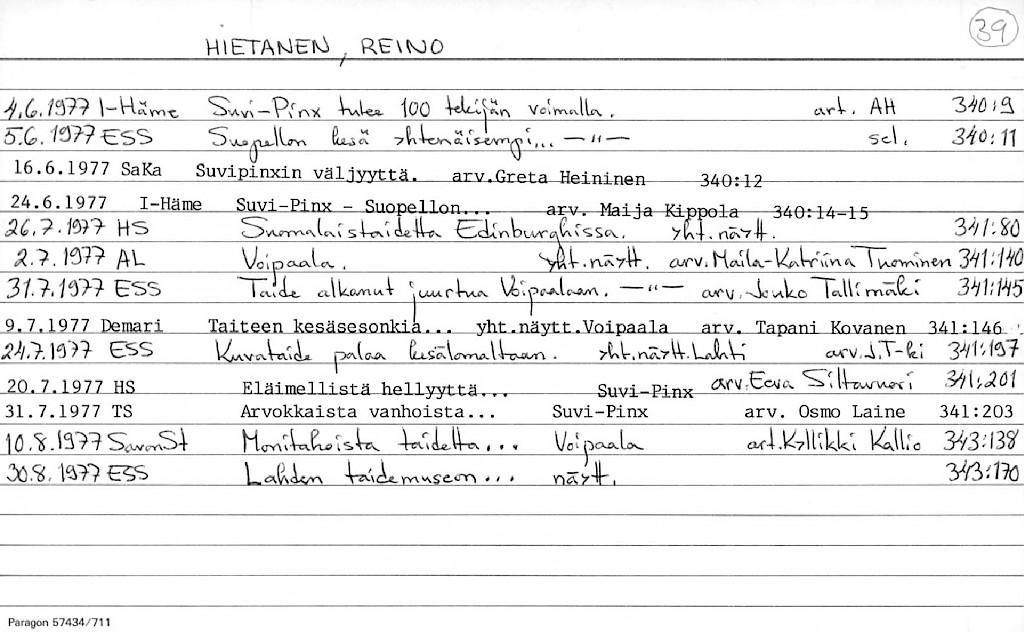 39
HIETANEN, REINO
4.6.1977 I-Häme Suvi-Pinx tulee 100 tekijän voimalla. art. AH 340:9
5.6.1977 ESS Suopellon kesä yhtenäisempi... —"— sel. 340:11
16.6.1977 SaKa Suvipinxin väljyyttä. arv.Greta Heininen 340:12
24.6.1977 I-Häme Suvi-Pinx - Suopellon... arv. Maija Kippola 340:14-15
26.7.1977 HS Suomalaistaidetta Edinburghissa. yht.näytt. 341:80
2.7.1977 AL Voipaala. yht.näytt. arv.Maila-Katriina Tuominen 341:140
31.7.1977 ESS Taide alkanut juurtua Voipaalaan. —"— arv. Jouko Tallimäki 341:145
9.7.1977 Demari Taiteen kesäsesonkia... yht.näytt.Voipaala arv. Tapani Kovanen 341:146
24.7.1977 ESS Kuvataide palaa kesälomaltaan. yht.näytt.Lahti arv.J.T-ki 341:197
20.7.1977 HS Eläimellistä hellyyttä... Suvi-Pinx arv.Eeva Siltavuori 341:201
31.7.1977 TS Arvokkaista vanhoista... Suvi-Pinx arv. Osmo Laine 341:203
10.8.1977 SavonSt Monitahoista taidetta... Voipaala art.Kyllikki Kallio 343:138
30.8.1977 ESS Lahden taidemuseon... näytt. 343:170
Paragon 57434/711